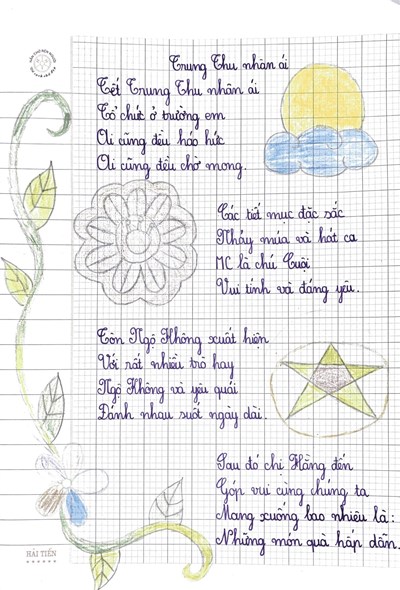 Trung Thu nhân ái
Tết Trung Thu nhân ái
Tổ chức ở trường em
Ai cũng đều háo hức
Ai cũng đều chờ mong.
Các tiết mục đặc sắc
Nhảy múa và hát ca
MC là chú Cuội
Vui tính và đáng yêu.
Tôn Ngộ Không xuất hiện
Với rất nhiều trò hay
Ngộ Không và yêu quái
Đánh nhau suốt ngày dài.
Sau đó chị Hằng đến
Góp vui cùng chúng ta
Mang xuống bao nhiêu là:
Những món quà hấp dẫn.
HẢI TIẾN